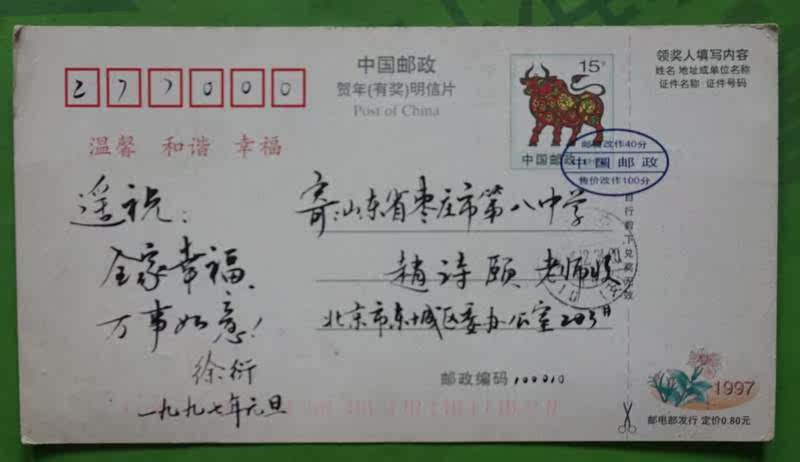 277000
中国邮政
贺年(有奖)明信片
Post of China
15分
中国邮政
邮资改作40分
中国邮政
售价改作100分
领奖人填写内容
姓名 地址或单位名称
证件名称 证件号码
温馨 和谐 幸福
遥祝:
全家幸福、
万事如意!
徐衍
一九九七年元旦
寄:山东省枣庄市第八中学
趙诗颐 老师收
北京市东城区委办公室203#
邮政编码 100010
自行剪下兑奖无效
1997
邮电部发行 定价0.80元